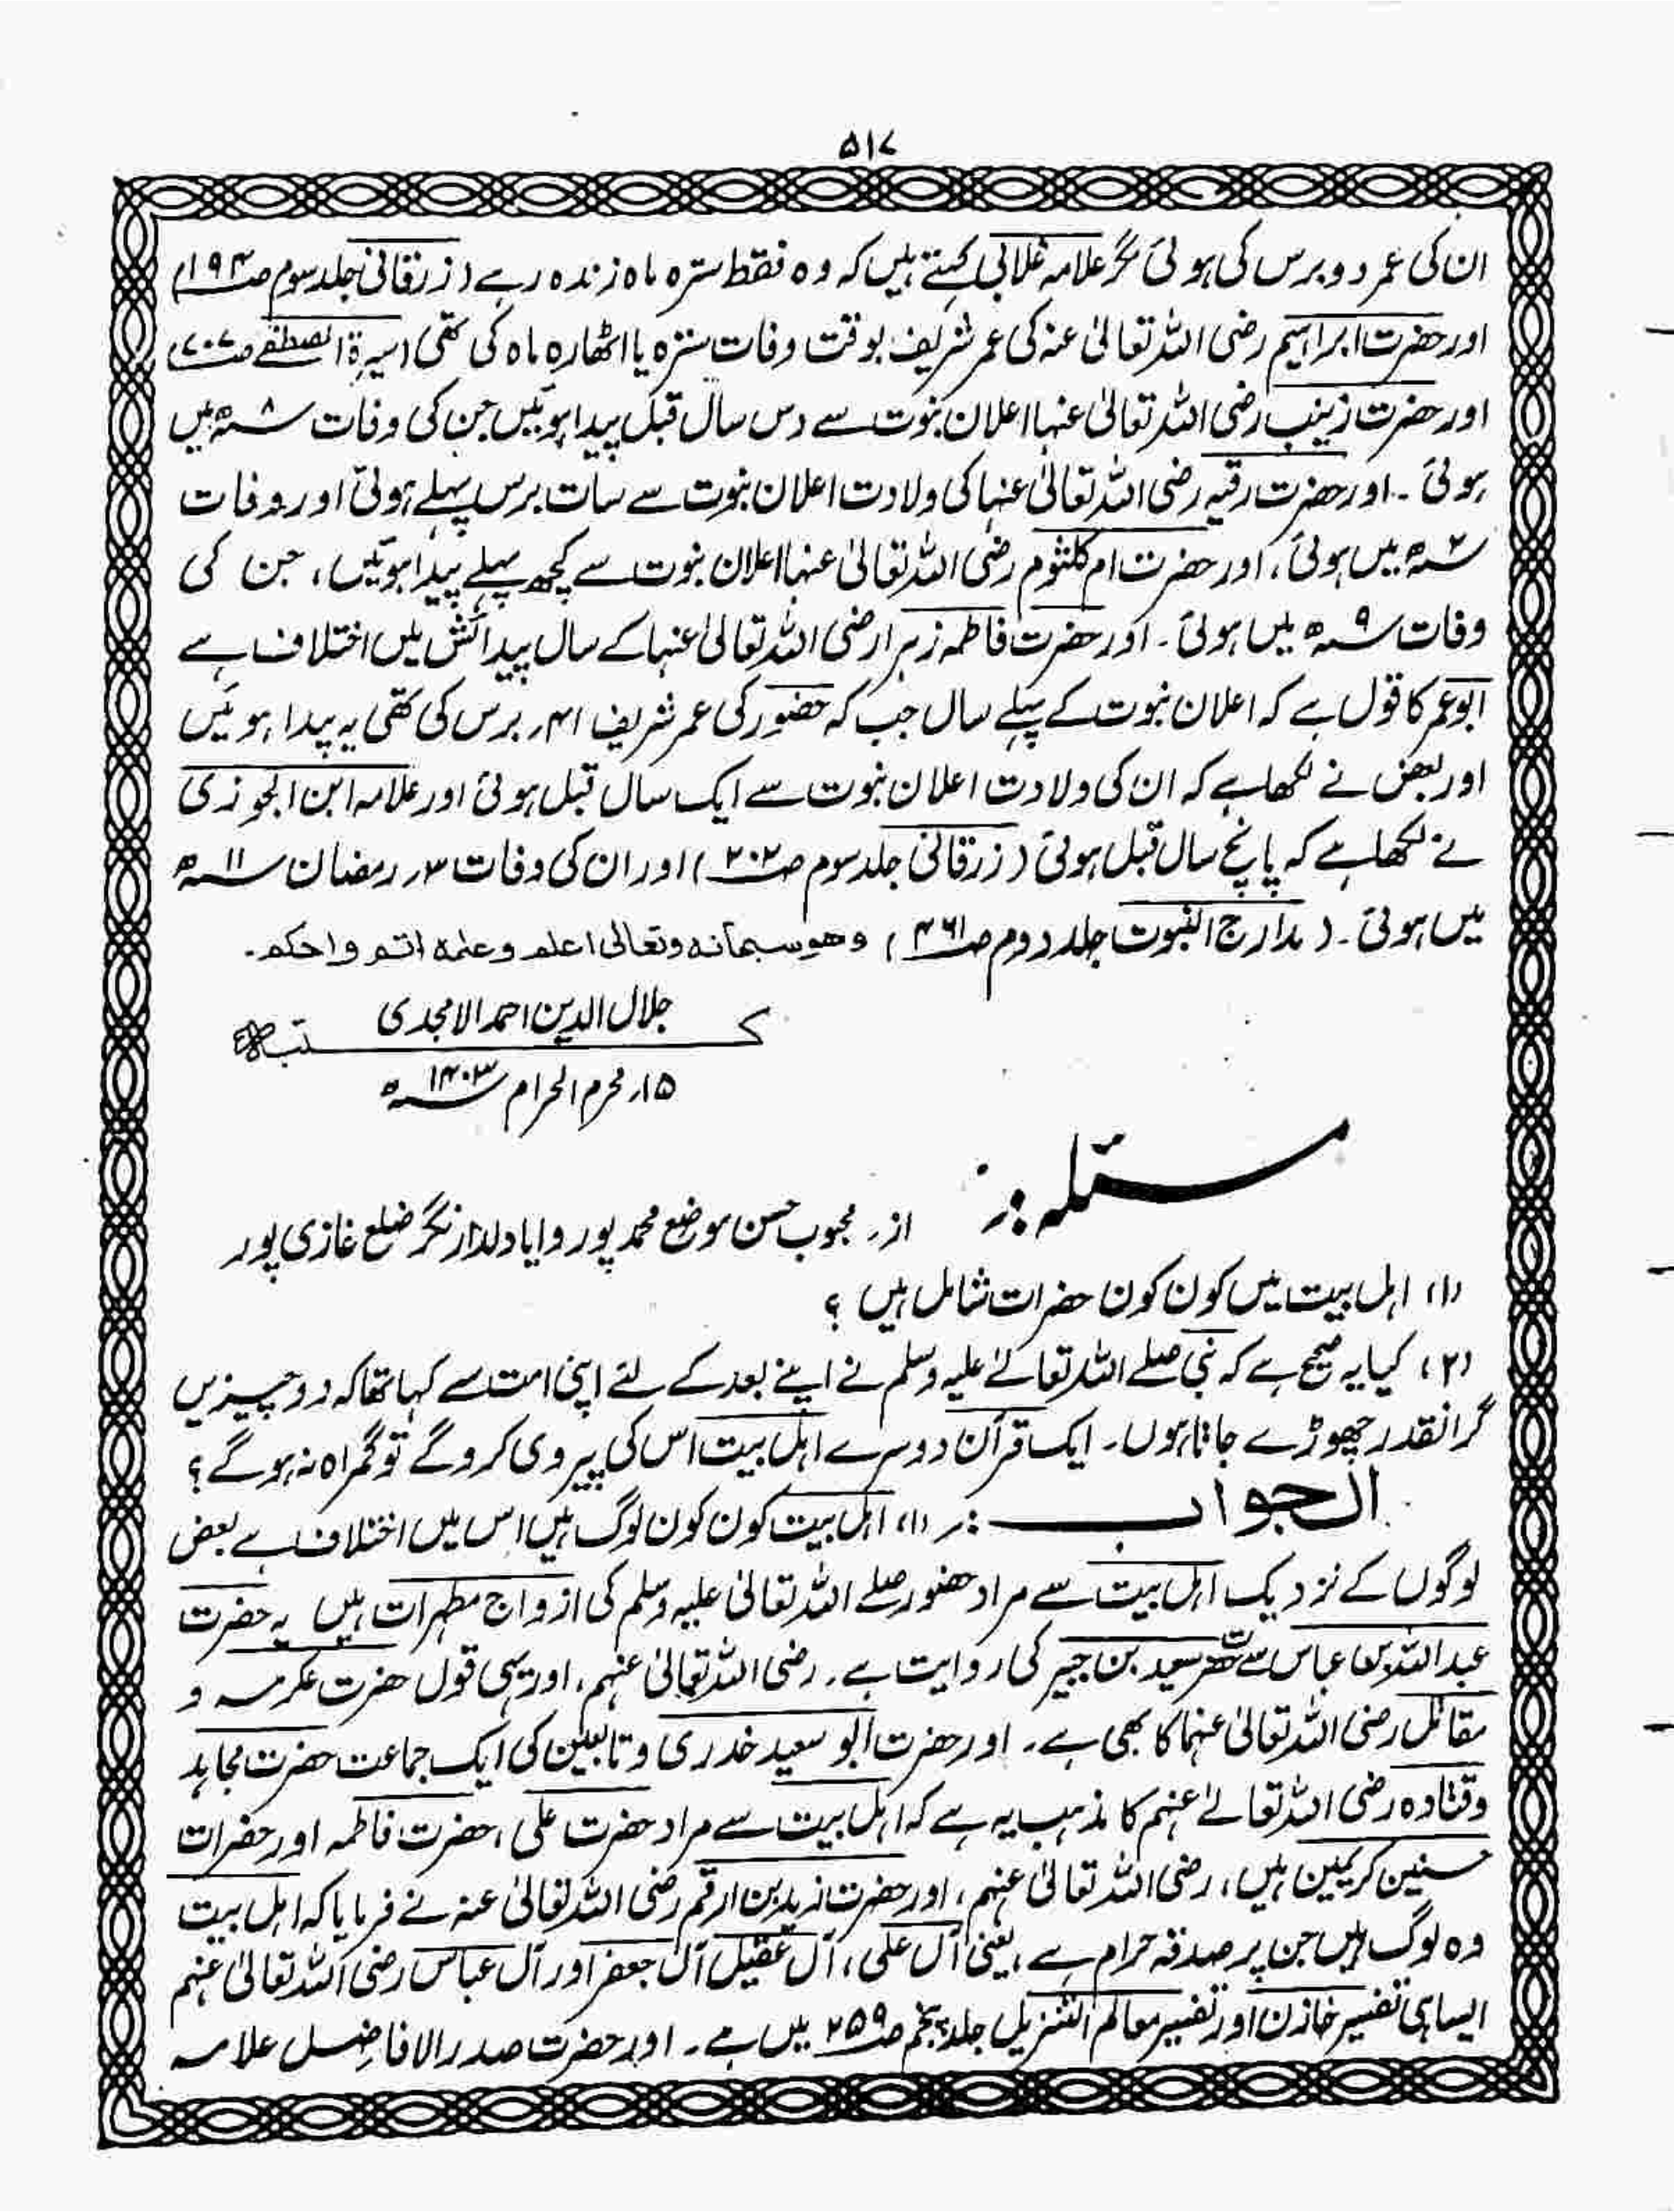 ۵۱۷
ان کی عمر دو برس کی ہوئی مگر علامہ غلابی کہتے ہیں کہ وہ فقط سترہ ماہ زندہ رہے (زرقانی جلد سوم صـ۱۹۴)
اور حضرت ابراہیم رضی اللہ تعالیٰ عنہ کی عمر شریف بوقت وفات سترہ یا اٹھارہ ماہ کی تھی (سیرۃ المصطفے صـ۷۰۷)
اور حضرت زینب رضی اللہ تعالیٰ عنہا اعلان نبوت سے دس سال قبل پیدا ہوئیں جن کی وفات ۸ھ میں
ہوئی۔ اور حضرت رقیہ رضی اللہ تعالیٰ عنہا کی ولادت اعلان نبوت سے سات برس پہلے ہوئی اور وفات
۲ھ میں ہوئی، اور حضرت ام کلثوم رضی اللہ تعالیٰ عنہا اعلان نبوت سے کچھ پہلے پیدا ہوئیں، جن کی
وفات ۹ھ میں ہوئی۔ اور حضرت فاطمہ زہرا رضی اللہ تعالیٰ عنہا کے سال پیدائش میں اختلاف ہے
ابو عمر کا قول ہے کہ اعلان نبوت کے پہلے سال جب کہ حضور کی عمر شریف ۴۱ر برس کی تھی یہ پیدا ہوئیں
اور بعض نے لکھا ہے کہ ان کی ولادت اعلان نبوت سے ایک سال قبل ہوئی اور علامہ ابن الجوزی
نے لکھا ہے کہ پانچ سال قبل ہوئی (زرقانی جلد سوم صـ۲۰۲) اور ان کی وفات ۳ر رمضان ۱۱ھ
میں ہوئی۔ (مدارج النبوت جلد دوم صـ۴۶۱) وھو سبحانہ وتعالی اعلم وعلمہ اتم واحکم۔
جلال الدین احمد الامجدی
کتبہ
۱۵ر محرم الحرام ۱۴۰۳ھ
مسئلہ :۔ از۔ محبوب حسن موضع محمد پور وایا دلدار نگر ضلع غازی پور
(۱) اہل بیت میں کون کون حضرات شامل ہیں؟
(۲) کیا یہ صحیح ہے کہ نبی صلے اللہ تعالےٰ علیہ وسلم نے اپنے بعد کے لئے اپنی امت سے کہا تھا کہ دو چیزیں
گرانقدر چھوڑے جاتا ہوں۔ ایک قرآن دوسرے اہل بیت اس کی پیروی کرو گے تو گمراہ نہ ہو گے؟
الجواب :۔ (۱) اہل بیت کون کون لوگ ہیں اس میں اختلاف ہے بعض
لوگوں کے نزدیک اہل بیت سے مراد حضور صلے اللہ تعالیٰ علیہ وسلم کی ازواج مطہرات ہیں یہ حضرت
عبداللہ بن عباس سے حضرت سعید بن جبیر کی روایت ہے۔ رضی اللہ تعالیٰ عنہم، اور یہی قول حضرت عکرمہ و
مقاتل رضی اللہ تعالیٰ عنہما کا بھی ہے۔ اور حضرت ابو سعید خدری و تابعین کی ایک جماعت حضرت مجاہد
وقتادہ رضی اللہ تعالےٰ عنہم کا مذہب یہ ہے کہ اہل بیت سے مراد حضرت علی، حضرت فاطمہ اور حضرات
حسنین کریمین ہیں، رضی اللہ تعالیٰ عنہم، اور حضرت زید بن ارقم رضی اللہ تعالیٰ عنہ نے فرمایا کہ اہل بیت
وہ لوگ ہیں جن پر صدقہ حرام ہے، یعنی آل علی، آل عقیل آل جعفر اور آل عباس رضی اللہ تعالیٰ عنہم
ایسا ہی تفسیر خازن اور تفسیر معالم التنزیل جلد پنجم صـ۲۵۹ میں ہے۔ اور حضرت صدر الافاضل علامہ